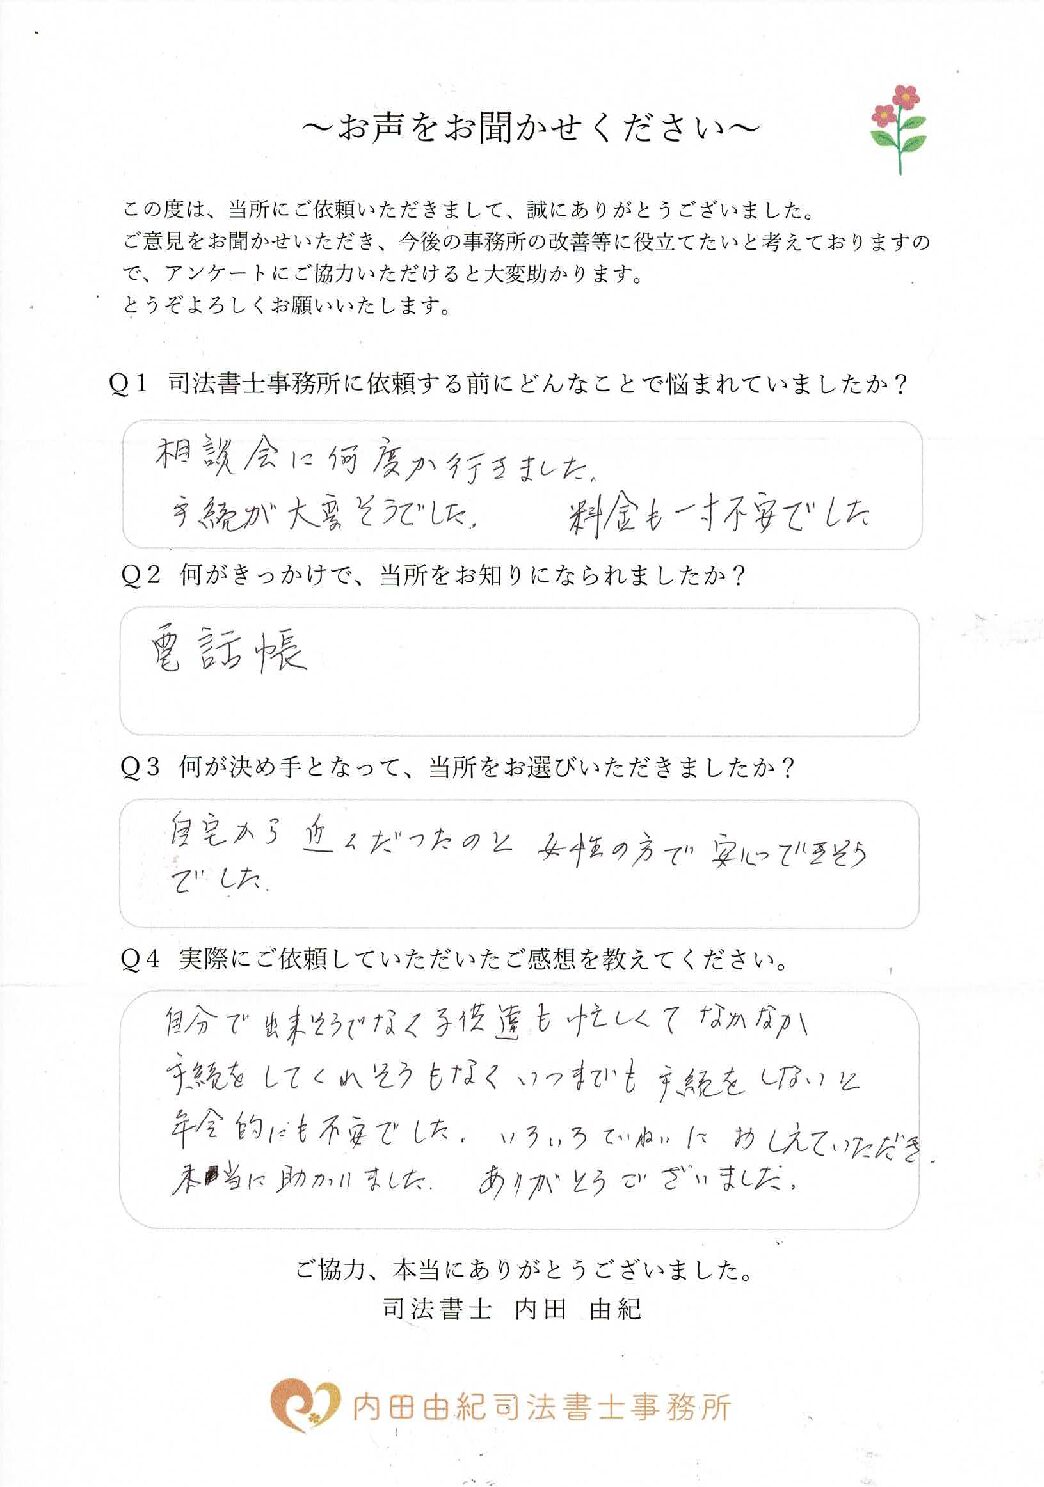 ～お声をお聞かせください～
この度は、当所にご依頼いただきまして、誠にありがとうございました。
ご意見をお聞かせいただき、今後の事務所の改善等に役立てたいと考えておりますの
で、アンケートにご協力いただけると大変助かります。
とうぞよろしくお願いいたします。
Q1 司法書士事務所に依頼する前にどんなことで悩まれていましたか？
相談会に何度か行きました。
手続が大変そうでした。 料金も一寸不安でした
Q2 何がきっかけで、当所をお知りになられましたか？
電話帳
Q3 何が決め手となって、当所をお選びいただきましたか？
自宅から近くだったのと女性の方で安心できそう
でした。
Q4 実際にご依頼していただいたご感想を教えてください。
自分で出来そうでなく子供達も忙しくてなかなか
手続をしてくれそうもなくいつまでも手続をしないと
年令的にも不安でした。いろいろていねいにおしえていただき、
本当に助かいました。ありがとうございました。
ご協力、本当にありがとうございました。
司法書士 内田 由紀
内田由紀司法書士事務所